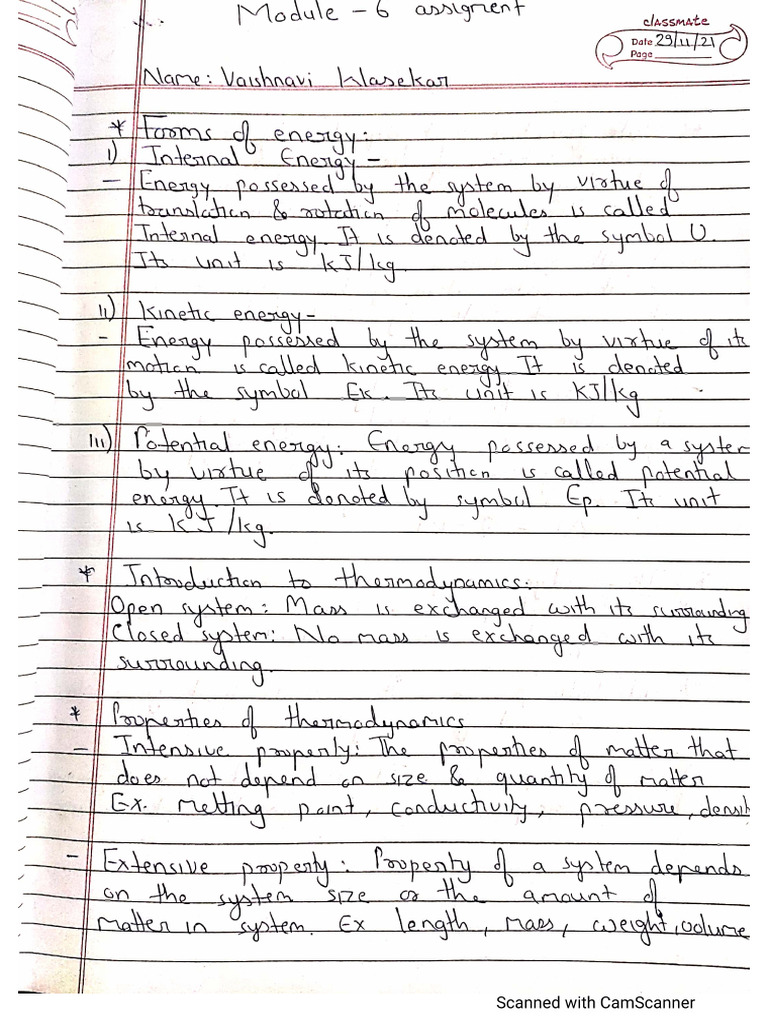 Module - 6 assigment
classmate
Date 29/11/21
Page
Name: Vaishnavi Klasekar
* Forms of energy:
i) Internal Energy -
- Energy possessed by the system by virtue of
translation & rotation of molecules is called
Internal energy. It is denoted by the symbol U.
Its unit is KJ/kg.
ii) Kinetic energy -
- Energy possessed by the system by virtue of its
motion is called kinetic energy. It is denoted
by the symbol Ek. Its unit is KJ/kg
iii) Potential energy: Energy possessed by a system
by virtue of its position is called potential
energy. It is denoted by symbol Ep. Its unit
is KJ/kg.
* Introduction to thermodynamics:
Open system: Mass is exchanged with its surrounding
Closed system: No mass is exchanged with its
surrounding.
* Properties of thermodynamics
- Intensive property: The properties of matter that
does not depend on size & quantity of matter
Ex. melting point, conductivity, pressure, densit
- Extensive property: Property of a system depends
on the system size or the amount of
matter in system. Ex length, mass, weight, volume
Scanned with CamScanner